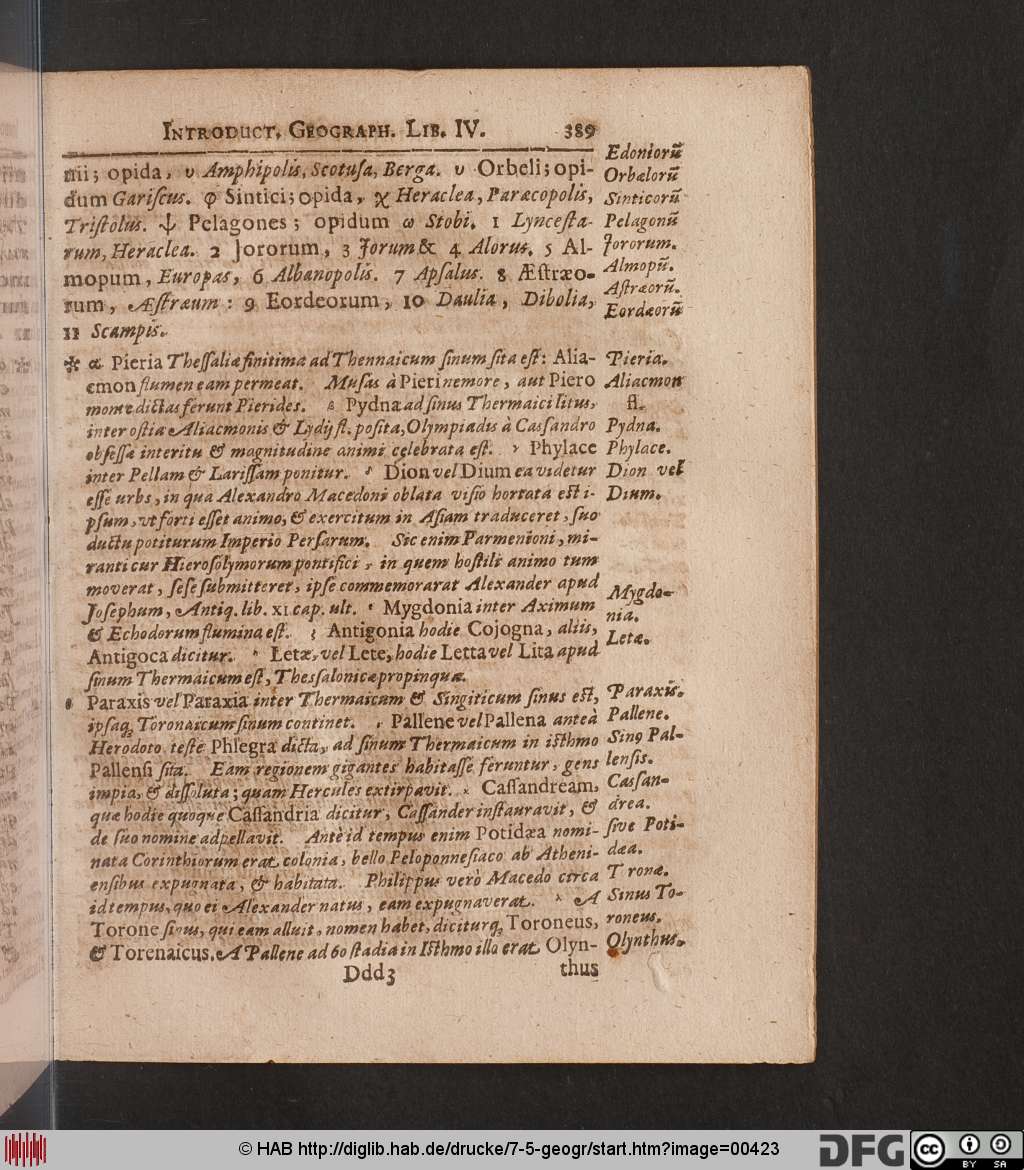 INTRODUCT. GEOGRAPH. LIB. IV. 389
nii; opida, υ Amphipolis, Scotuſa, Berga. υ Orbeli; opi-
dum Gariſcus. φ Sintici; opida, χ Heraclea, Paræcopolis,
Triſtolus. ψ Pelagones; opidum ω Stobi. 1 Lynceſta-
rum, Heraclea. 2 Jororum, 3 Jorum & 4 Alorus. 5 Al-
mopum, Europas, 6 Albanopolis. 7 Apſalus. 8 Æſtræo-
rum, Æſtræum: 9 Eordeorum, 10 Daulia, Dibolia,
11 Scampis.
* α Pieria Theſſaliæ finitima ad Thennaicum ſinum ſita eſt: Alia-
cmon flumen eam permeat. Muſas à Pieri nemore, aut Piero
monte dictas ferunt Pierides. β Pydna ad ſinus Thermaici litus,
inter oſtia Aliacmonis & Lydij fl. poſita, Olympiadis à Caſſandro
obſeſſæ interitu & magnitudine animi celebrata eſt. γ Phylace
inter Pellam & Lariſſam ponitur. δ Dion vel Dium ea videtur
eſſe urbs, in qua Alexandro Macedoni oblata viſio hortata eſt i-
pſum, vt forti eſſet animo, & exercitum in Aſiam traduceret, ſuo
ductu potiturum Imperio Perſarum. Sic enim Parmenioni, mi-
ranti cur Hieroſolymorum pontifici, in quem hoſtili animo tum
moverat, ſeſe ſubmitteret, ipſe commemorarat Alexander apud
Joſephum, Antiq. lib. XI. cap. ult. ε Mygdonia inter Axium
& Echodorum flumina eſt. ζ Antigonia hodie Cojogna, aliis,
Antigoca dicitur. Letæ, vel Lete, hodie Letta vel Lita apud
ſinum Thermaicum eſt, Theſſalonicæ propinquæ.
θ Paraxis vel Paraxia inter Thermaicum & Singiticum ſinus eſt,
ipſaq; Toronaicum ſinum continet. Pallene vel Pallena anteà
Herodoto teſte Phlegra dicta, ad ſinum Thermaicum in iſthmo
Pallenſi ſita. Eam regionem gigantes habitaſſe feruntur, gens
impia, & diſſoluta; quam Hercules extirpavit. Caſſandream,
quæ hodie quoque Caſſandria dicitur, Caſſander inſtauravit, &
de ſuo nomine adpellavit. Antè id tempus enim Potidæa nomi-
nata Corinthiorum erat colonia, bello Peloponneſiaco ab Atheni-
enſibus expugnata, & habitata. Philippus verò Macedo circa
id tempus, quo ei Alexander natus, eam expugnaverat. A
Torone ſinus, qui eam alluit, nomen habet, diciturq; Toroneus,
& Torenaicus. A Pallene ad 60 ſtadia in Iſthmo illo erat Olyn-
Ddd3 thus
Edoniorũ
Orbælorũ
Sinticorũ
Pelagonũ
Jororum.
Almopũ.
Aſtræorũ.
Eordæorũ
Pieria.
Aliacmon
fl.
Pydna.
Phylace.
Dion vel
Dium.
Mygdo-
nia.
Letæ.
Paraxis.
Pallene.
Sing Pal-
lenſis.
Caſſan-
drea.
ſive Poti-
dæa.
T ronæ.
Sinus To-
roneus.
Olynthus.
© HAB http://diglib.hab.de/drucke/7-5-geogr/start.htm?image=00423
DFG
cc
BY SA